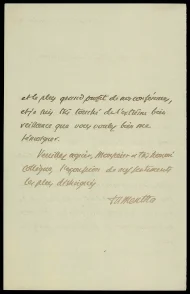 et le plus grand profit de nos conférences,
et je suis très touché de l'extrême bien
veillance que vous voulez bien me
témoigner.
Veuillez agréer, Monsieur et très honoré
collègue, l'expression de mes sentiments
les plus distingués